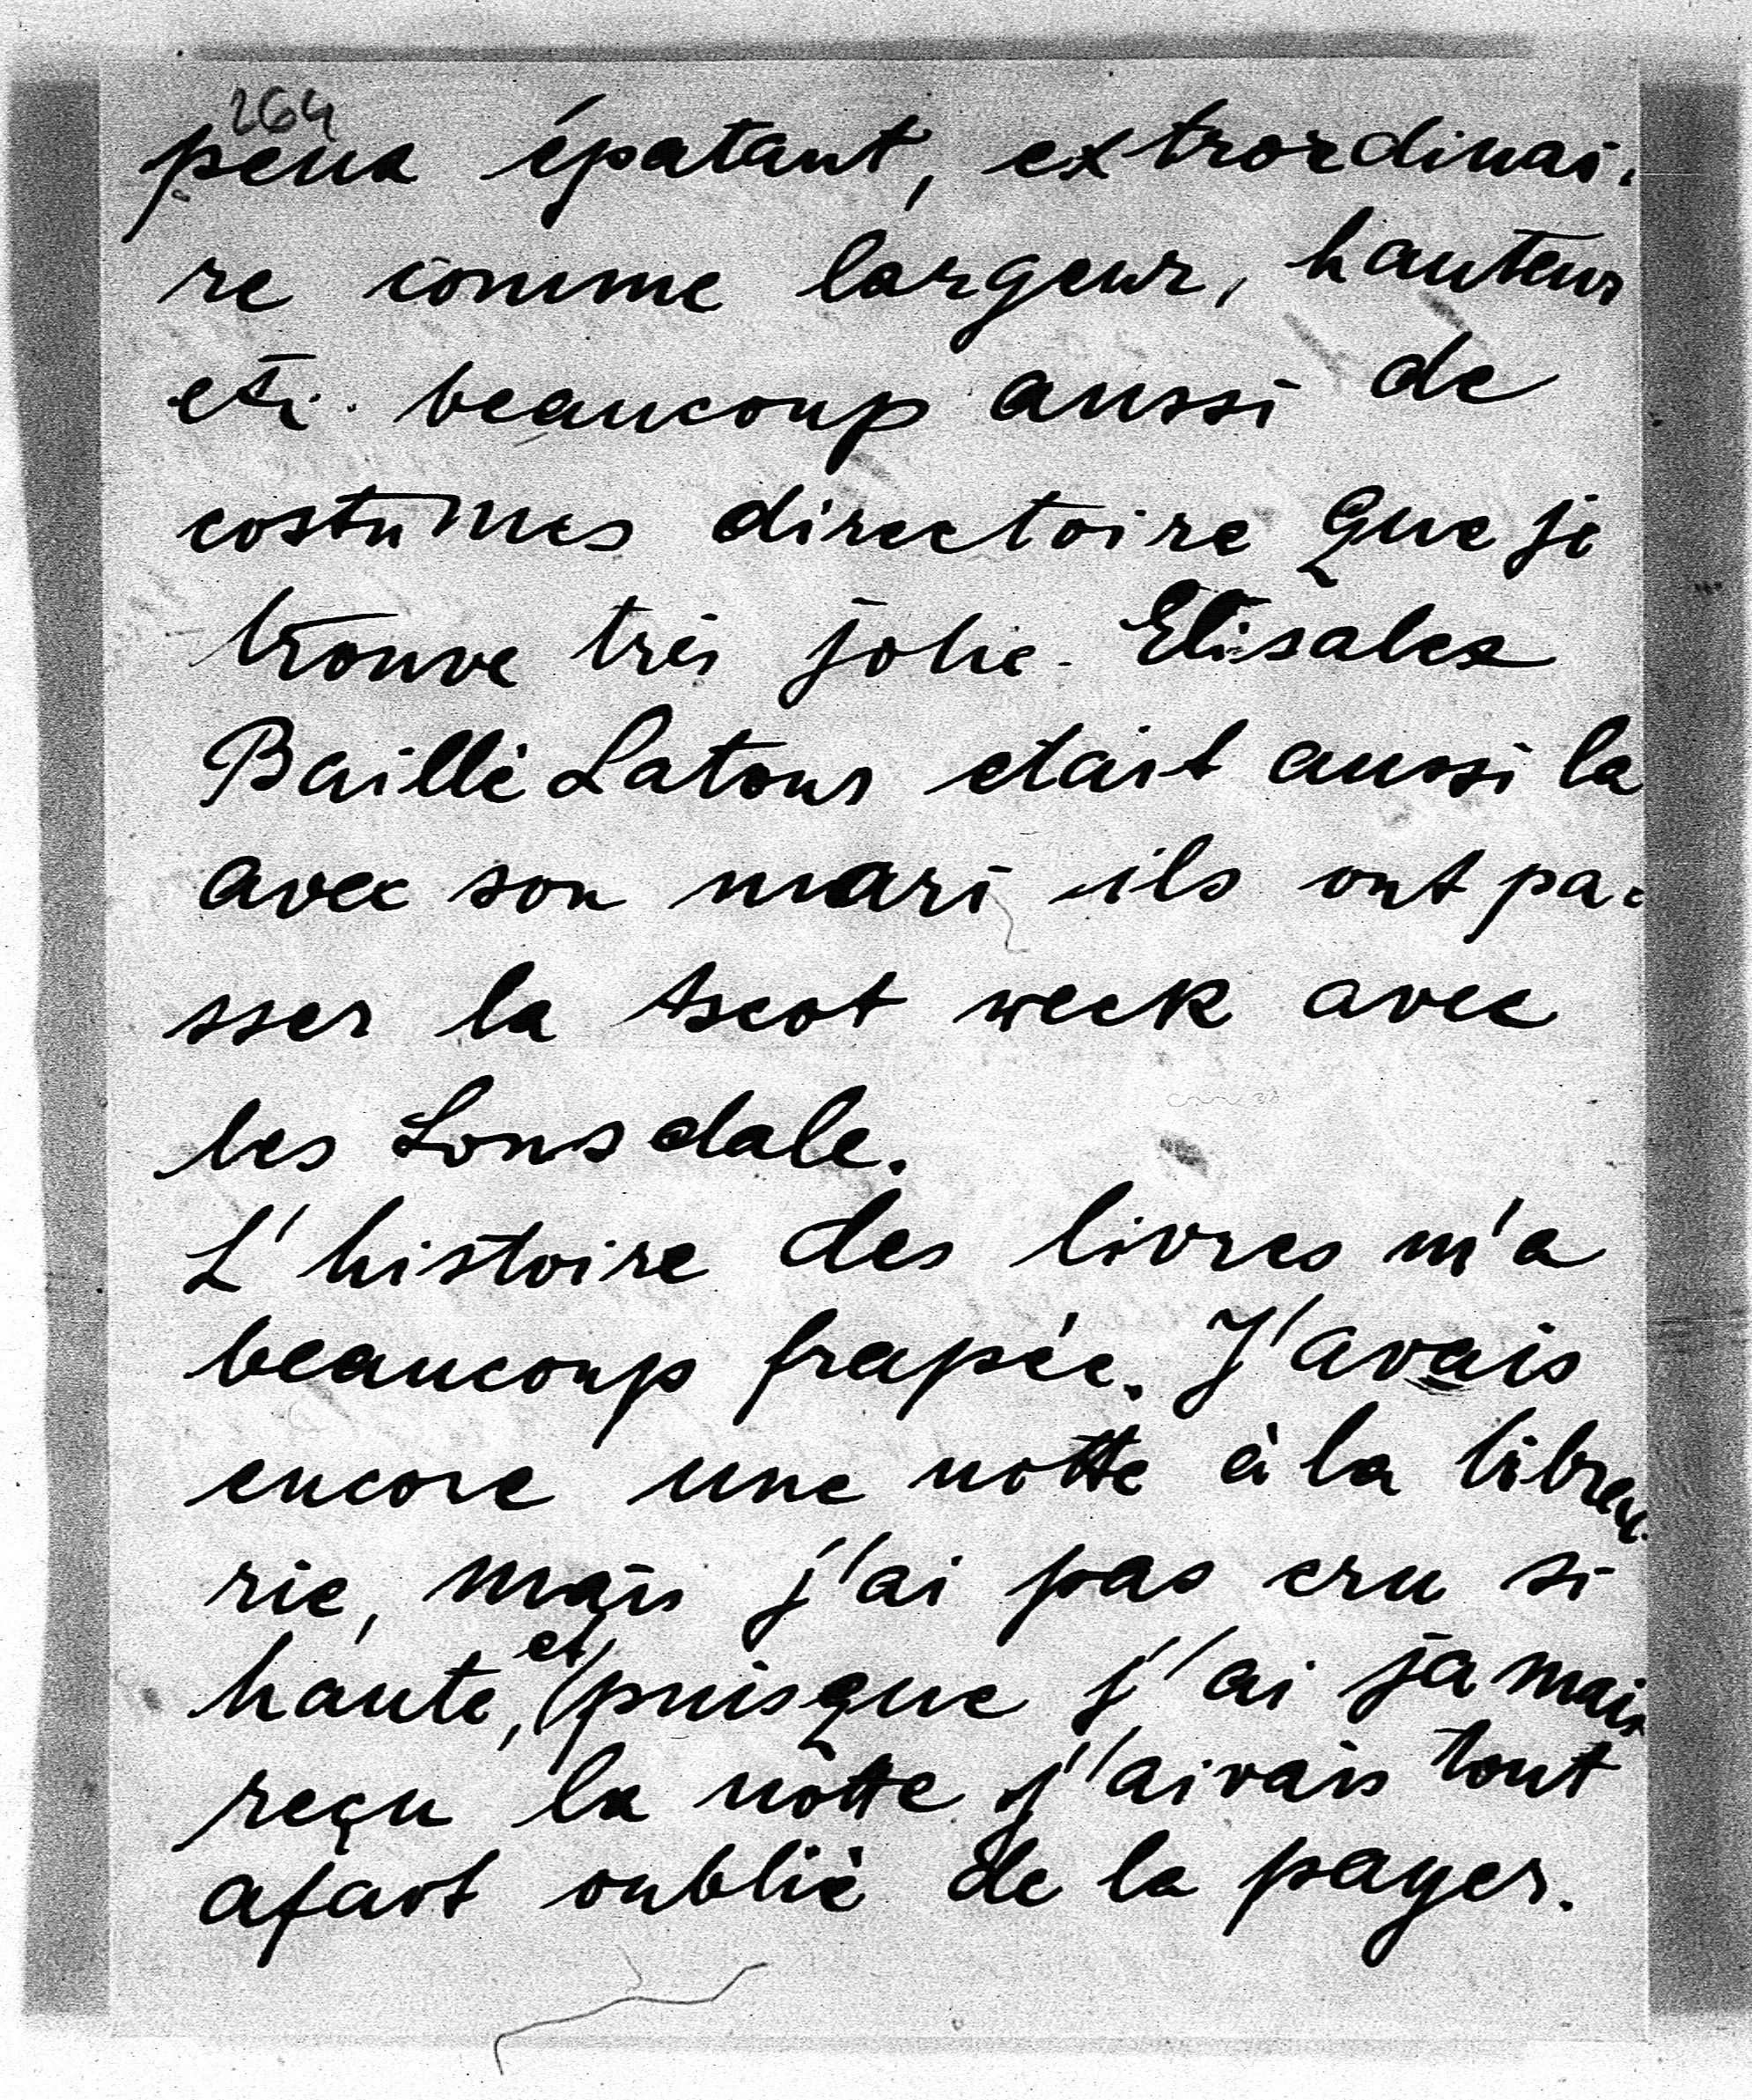 264
peux épatant, extrordinai-
re comme largeur, hauteur
etc. beaucoup aussi de
costumes directoire que je
trouve très jolie. Elisalex
Baillé Latour etait aussi la
avec son mari ils ont pa-
sser la Ascot week avec
les Lonsdale.
L'histoire des livres m'a
beaucoup frapée. J'avais
encore une notte à la librai-
rie, mais j'ai pas cru si
haute, et puisque j'ai jamais
reçu la notte j'aivais tout
afait oublié de la payer.